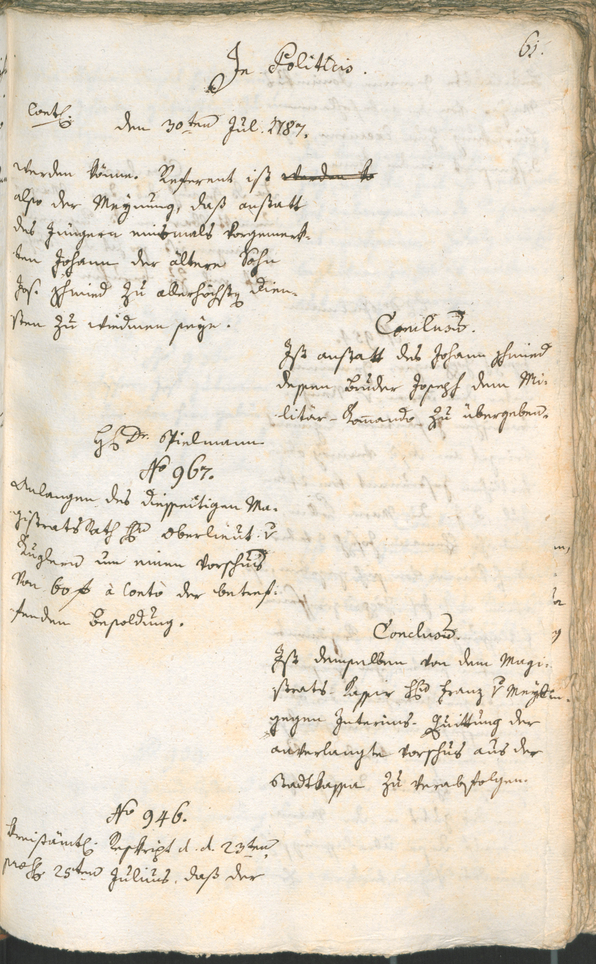 61.
In Politicis.
Contl:
den 30ten Jul. 1787.
werden könne. Referent ist werden ko
also der Meynung, daß anstatt
des Jüngern einsmals vorgemerk-
ten Johann der ältere Sohn
Jos. Schmied zu allerhöchst Dien-
sten zu widmen seye.
Conclusum.
Ist anstatt des Johann Schmied
dessen Bruder Joseph dem Mi-
litär-Kommando zu übergeben.
H. Dr. Spielmann
No 967.
Anlangen des diesseitigen Ma-
gistrats Rath H. Oberlieut. v
Kuglern um einen Vorschuß
von 60 f à Conto der betref-
fenden Besoldung.
Conclusum.
Ist demselben von dem Magi-
strats-Kassir H. Franz v
gegen Interims-Quittung der
anverlangte Vorschus aus der
Stadtkassa zu verabfolgen.
No 946.
Kreisämtl. Reskript d. d. 23ten
25ten Julius, daß der